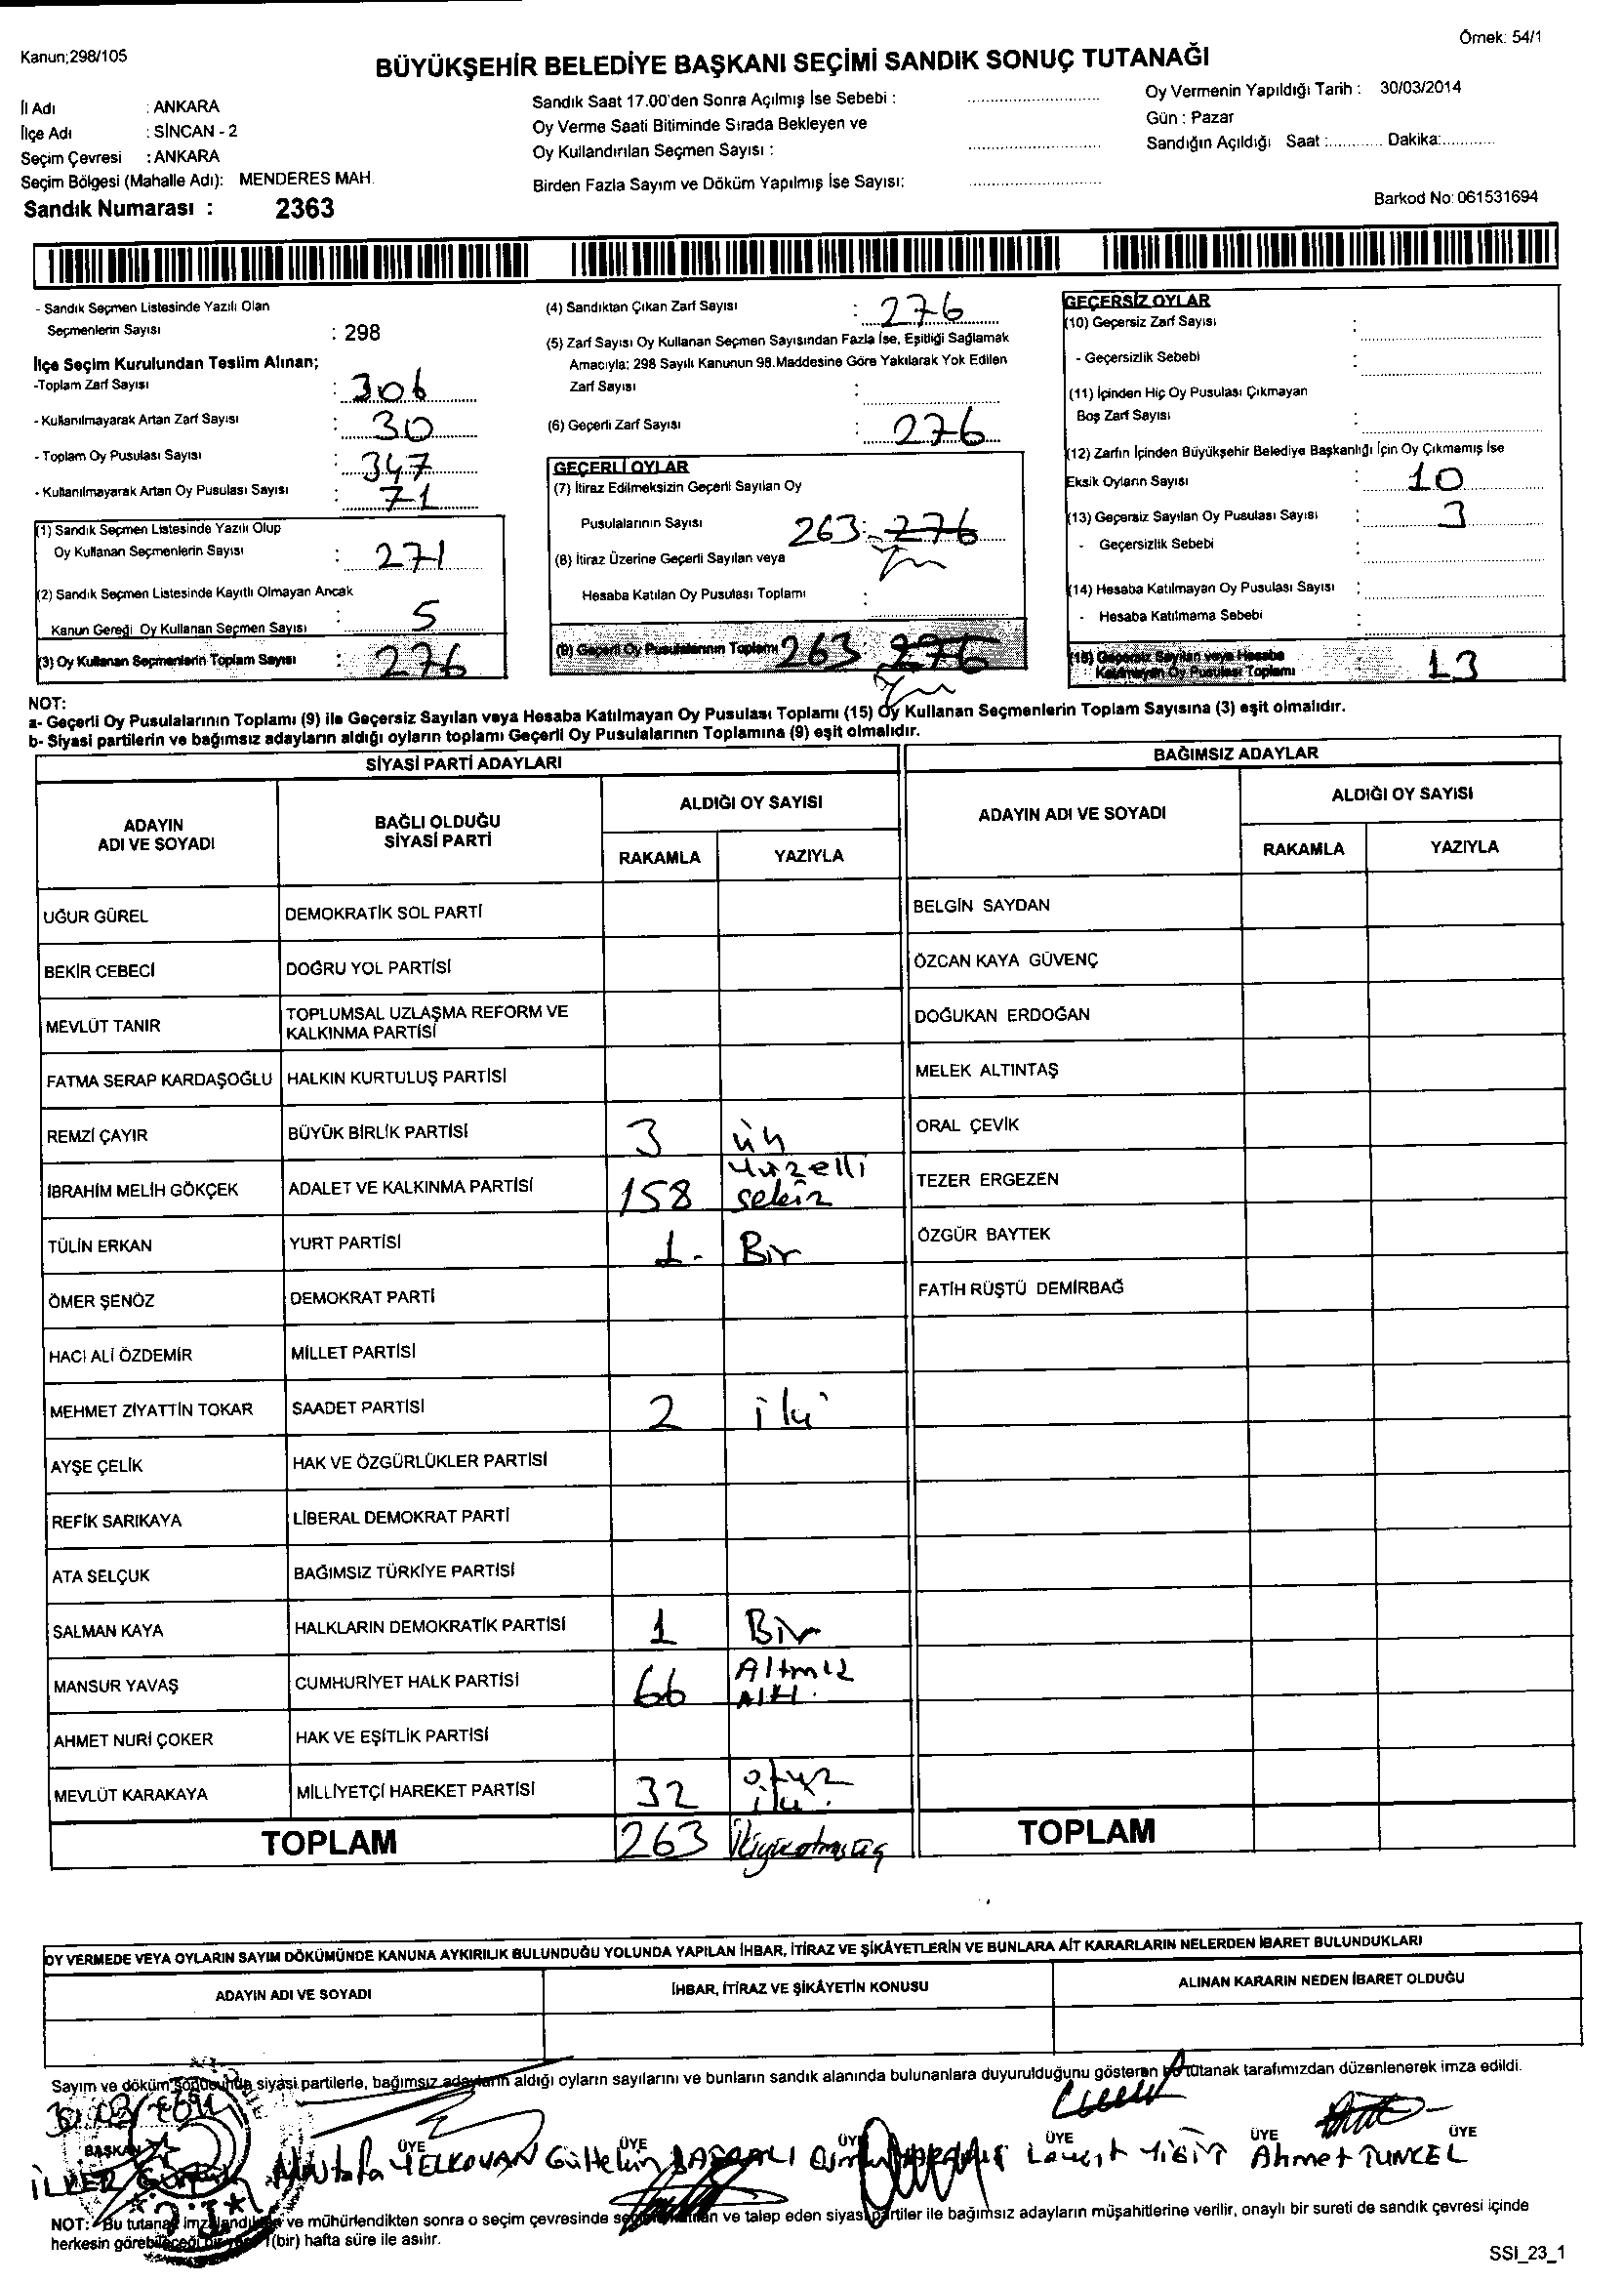 Kanun;298/105
Örnek: 54/1
BÜYÜKŞEHİR BELEDİYE BAŞKANI SEÇİMİ SANDIK SONUÇ TUTANAĞI
İl Adı : ANKARA
İlçe Adı : SİNCAN - 2
Seçim Çevresi : ANKARA
Seçim Bölgesi (Mahalle Adı): MENDERES MAH.
Sandık Numarası : 2363
Sandık Saat 17.00'den Sonra Açılmış İse Sebebi :
Oy Verme Saati Bitiminde Sırada Bekleyen ve
Oy Kullandırılan Seçmen Sayısı :
Birden Fazla Sayım ve Döküm Yapılmış İse Sayısı:
Oy Vermenin Yapıldığı Tarih : 30/03/2014
Gün : Pazar
Sandığın Açıldığı Saat :............ Dakika:............
Barkod No: 061531694
- Sandık Seçmen Listesinde Yazılı Olan
Seçmenlerin Sayısı : 298
İlçe Seçim Kurulundan Teslim Alınan;
-Toplam Zarf Sayısı : 306
- Kullanılmayarak Artan Zarf Sayısı : 30
- Toplam Oy Pusulası Sayısı : 347
- Kullanılmayarak Artan Oy Pusulası Sayısı : 71
(1) Sandık Seçmen Listesinde Yazılı Olup
Oy Kullanan Seçmenlerin Sayısı : 271
(2) Sandık Seçmen Listesinde Kayıtlı Olmayan Ancak
Kanun Gereği Oy Kullanan Seçmen Sayısı : 5
(3) Oy Kullanan Seçmenlerin Toplam Sayısı : 276
(4) Sandıktan Çıkan Zarf Sayısı : 276
(5) Zarf Sayısı Oy Kullanan Seçmen Sayısından Fazla İse, Eşitliği Sağlamak
Amacıyla; 298 Sayılı Kanunun 98.Maddesine Göre Yakılarak Yok Edilen
Zarf Sayısı :
(6) Geçerli Zarf Sayısı : 276
GEÇERLİ OYLAR
(7) İtiraz Edilmeksizin Geçerli Sayılan Oy
Pusulalarının Sayısı 263 : 276
(8) İtiraz Üzerine Geçerli Sayılan veya
Hesaba Katılan Oy Pusulası Toplamı :
(9) Geçerli Oy Pusulalarının Toplamı 263 276
GEÇERSİZ OYLAR
(10) Geçersiz Zarf Sayısı :
- Geçersizlik Sebebi :
(11) İçinden Hiç Oy Pusulası Çıkmayan
Boş Zarf Sayısı :
(12) Zarfın İçinden Büyükşehir Belediye Başkanlığı İçin Oy Çıkmamış İse
Eksik Oyların Sayısı : 10
(13) Geçersiz Sayılan Oy Pusulası Sayısı : 3
- Geçersizlik Sebebi :
(14) Hesaba Katılmayan Oy Pusulası Sayısı :
- Hesaba Katılmama Sebebi :
(15) Geçersiz Sayılan veya Hesaba
Katılmayan Oy Pusulası Toplamı : 13
NOT:
a- Geçerli Oy Pusulalarının Toplamı (9) ile Geçersiz Sayılan veya Hesaba Katılmayan Oy Pusulası Toplamı (15) Oy Kullanan Seçmenlerin Toplam Sayısına (3) eşit olmalıdır.
b- Siyasi partilerin ve bağımsız adayların aldığı oyların toplamı Geçerli Oy Pusulalarının Toplamına (9) eşit olmalıdır.
SİYASİ PARTİ ADAYLARI
ADAYIN ADI VE SOYADI
BAĞLI OLDUĞU SİYASİ PARTİ
ALDIĞI OY SAYISI
RAKAMLA YAZIYLA
UĞUR GÜREL DEMOKRATİK SOL PARTİ
BEKİR CEBECİ DOĞRU YOL PARTİSİ
MEVLÜT TANIR TOPLUMSAL UZLAŞMA REFORM VE KALKINMA PARTİSİ
FATMA SERAP KARDAŞOĞLU HALKIN KURTULUŞ PARTİSİ
REMZİ ÇAYIR BÜYÜK BİRLİK PARTİSİ 3 üç
İBRAHİM MELİH GÖKÇEK ADALET VE KALKINMA PARTİSİ 158 Yüzelli sekiz
TÜLİN ERKAN YURT PARTİSİ 1- Bir
ÖMER ŞENÖZ DEMOKRAT PARTİ
HACI ALİ ÖZDEMİR MİLLET PARTİSİ
MEHMET ZİYATTİN TOKAR SAADET PARTİSİ 2 iki
AYŞE ÇELİK HAK VE ÖZGÜRLÜKLER PARTİSİ
REFİK SARIKAYA LİBERAL DEMOKRAT PARTİ
ATA SELÇUK BAĞIMSIZ TÜRKİYE PARTİSİ
SALMAN KAYA HALKLARIN DEMOKRATİK PARTİSİ 1 Bir
MANSUR YAVAŞ CUMHURİYET HALK PARTİSİ 66 Altmış Altı.
AHMET NURİ ÇOKER HAK VE EŞİTLİK PARTİSİ
MEVLÜT KARAKAYA MİLLİYETÇİ HAREKET PARTİSİ 32 otuz iki.
TOPLAM 263 İkiyüzatmışüç
BAĞIMSIZ ADAYLAR
ADAYIN ADI VE SOYADI
ALDIĞI OY SAYISI
RAKAMLA YAZIYLA
BELGİN SAYDAN
ÖZCAN KAYA GÜVENÇ
DOĞUKAN ERDOĞAN
MELEK ALTINTAŞ
ORAL ÇEVİK
TEZER ERGEZEN
ÖZGÜR BAYTEK
FATİH RÜŞTÜ DEMİRBAĞ
TOPLAM
OY VERMEDE VEYA OYLARIN SAYIM DÖKÜMÜNDE KANUNA AYKIRILIK BULUNDUĞU YOLUNDA YAPILAN İHBAR, İTİRAZ VE ŞİKÂYETLERİN VE BUNLARA AİT KARARLARIN NELERDEN İBARET BULUNDUKLARI
ADAYIN ADI VE SOYADI İHBAR, İTİRAZ VE ŞİKÂYETİN KONUSU ALINAN KARARIN NEDEN İBARET OLDUĞU
Sayım ve döküm sonucunda siyasi partilerle, bağımsız adayların aldığı oyların sayılarını ve bunların sandık alanında bulunanlara duyurulduğunu gösteren bu tutanak tarafımızdan düzenlenerek imza edildi.
BAŞKAN ÜYE ÜYE ÜYE ÜYE ÜYE ÜYE
İLKER Mustafa YELKOVAN Gültekin YİĞİT Ahmet TUNCEL
NOT: Bu tutanak imzalandıktan ve mühürlendikten sonra o seçim çevresinde seçime katılan ve talep eden siyasi partiler ile bağımsız adayların müşahitlerine verilir, onaylı bir sureti de sandık çevresi içinde
herkesin görebileceği bir yere 1(bir) hafta süre ile asılır.
SSI_23_1